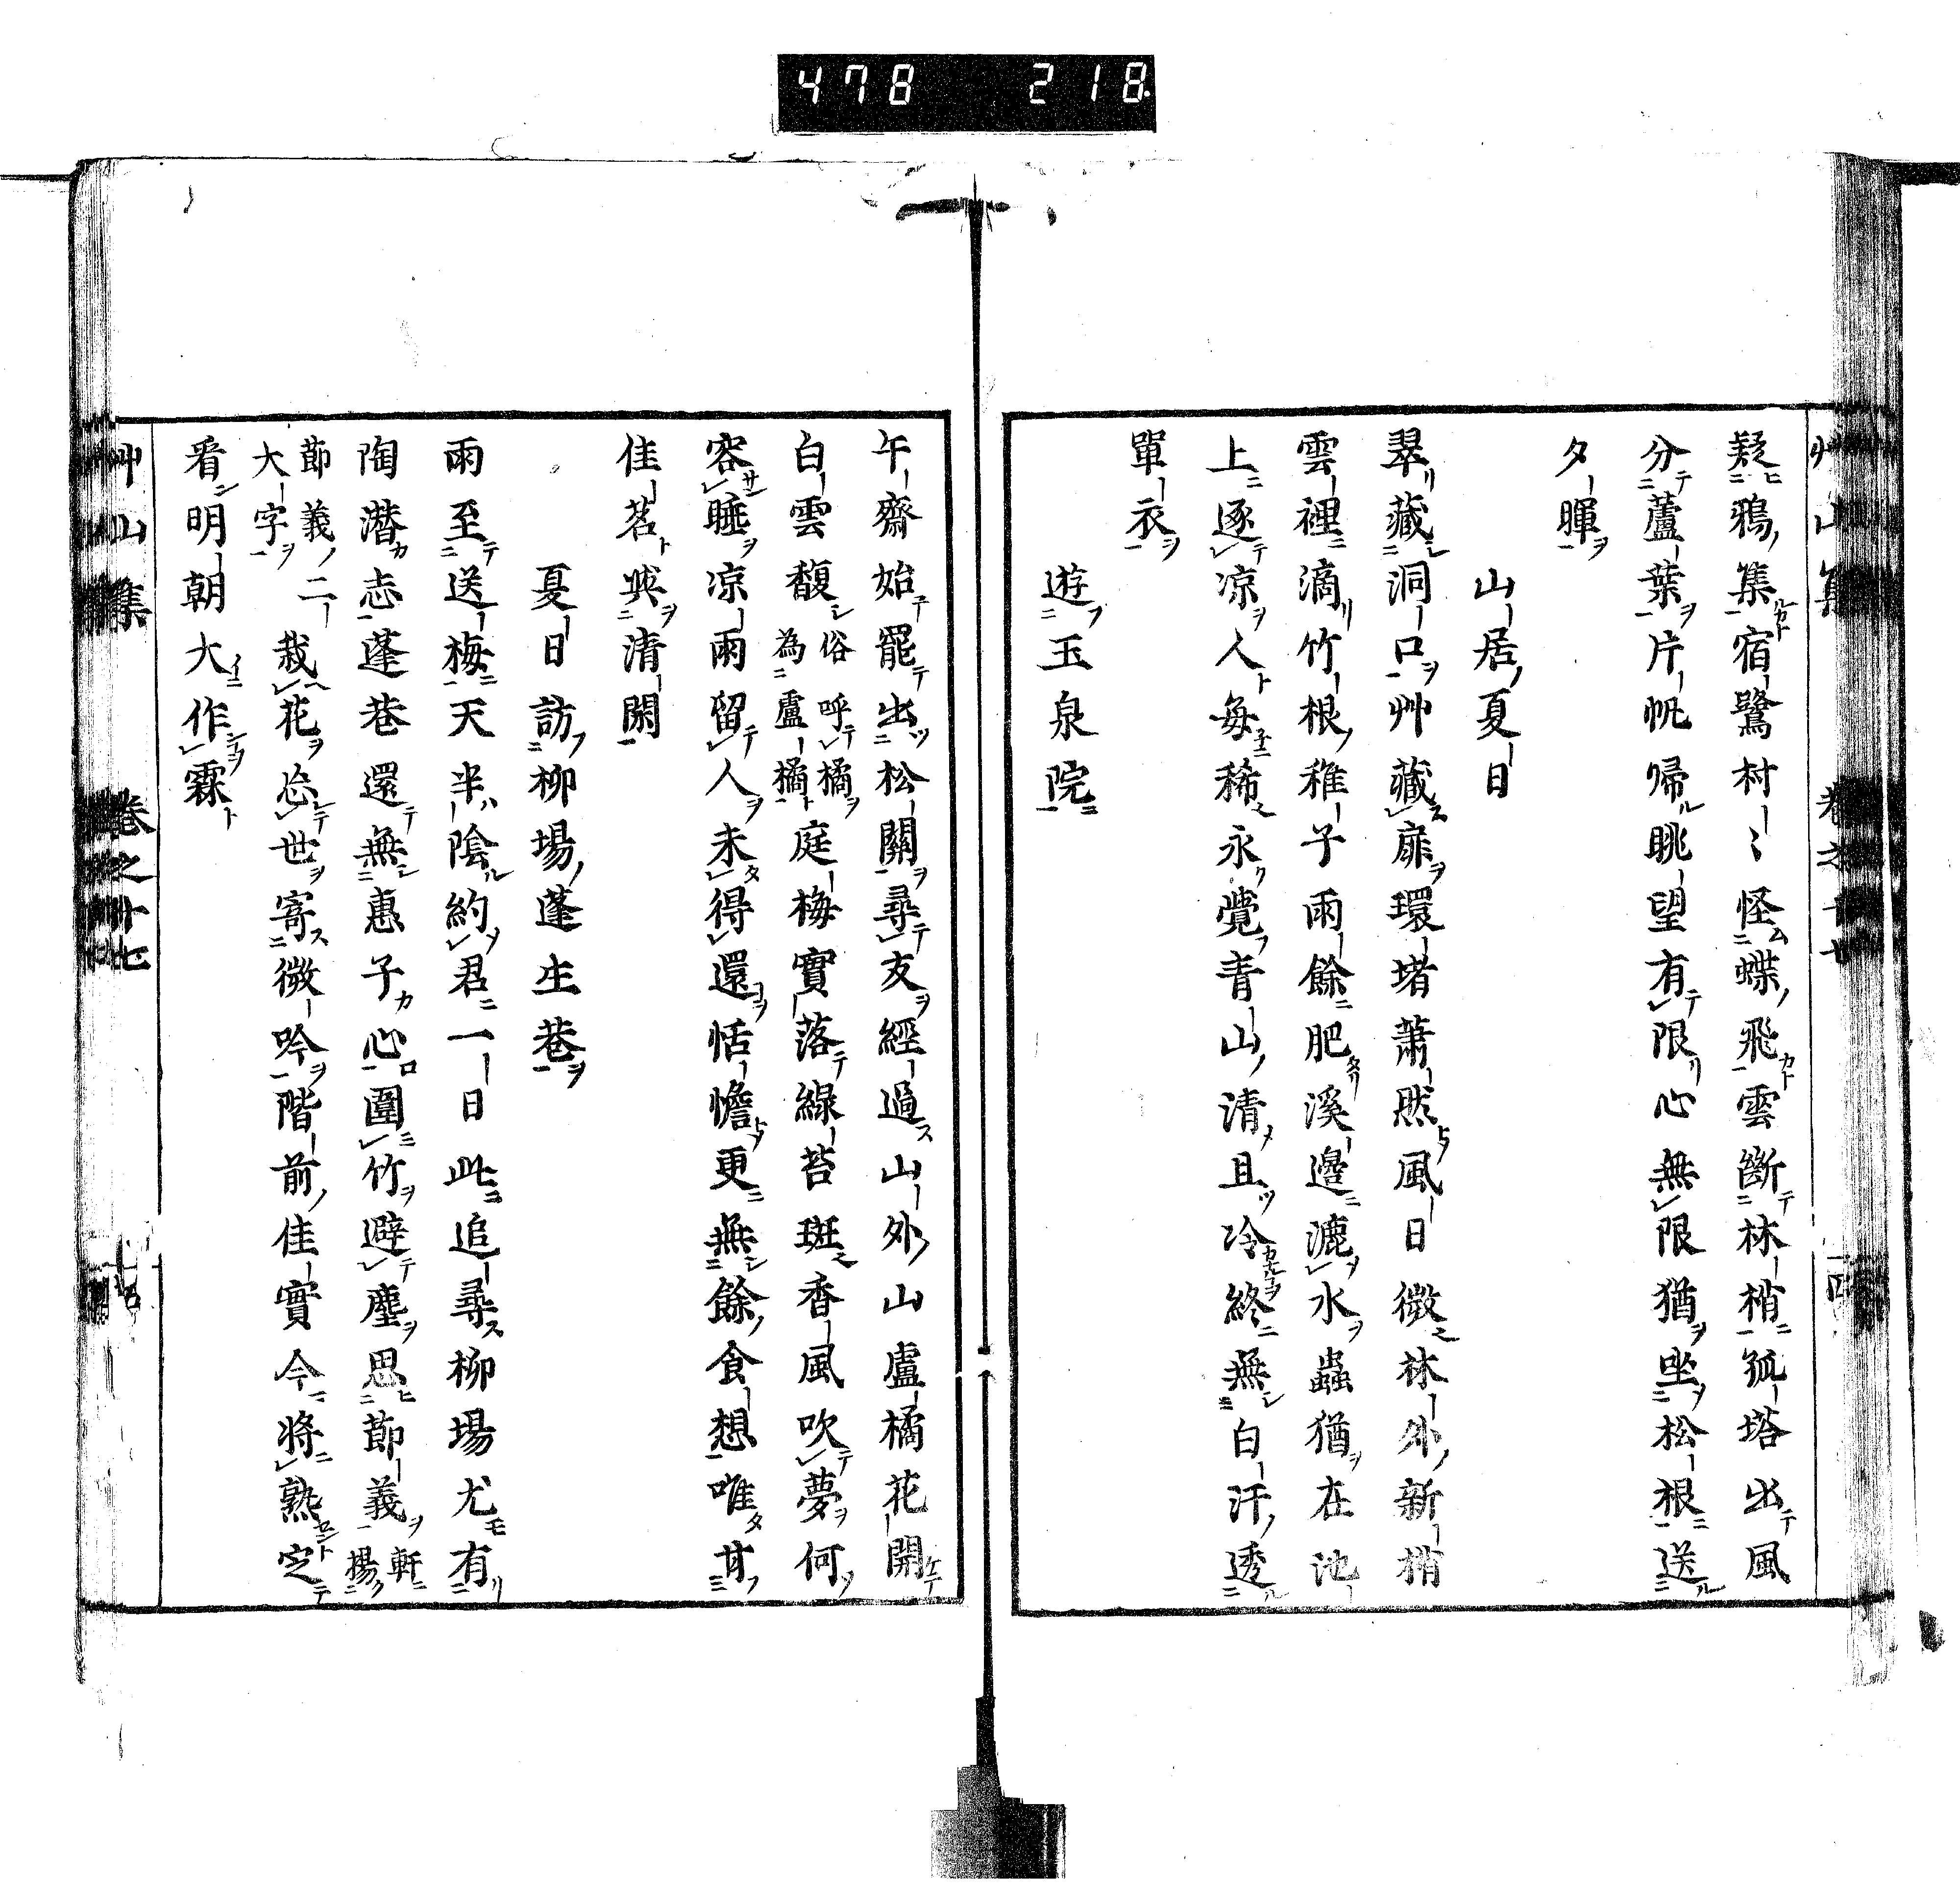 478 218
艸山集 卷之十七 十四
疑鴉集宿鷺村〻怪蝶飛雲斷林梢孤塔出風
分蘆葉片帆帰眺望有限心無限猶坐松根送
夕暉
山居夏日
翠藏洞口艸藏扉環堵蕭然風日微林外新梢
雲裡滴竹根稚子雨餘肥溪邊漉水蟲猶在池
上逐凉人每稀永覺青山清且冷終無白汗透
單衣
遊玉泉院
午齋始罷出松關尋友經過山外山盧橘花開
白雲馥俗呼橘為盧橘庭梅實落綠苔斑香風吹夢何
容睡凉雨留人未得還恬憺更無餘食想唯甘
佳茗與清閑
夏日訪柳場蓬生巷
雨至送梅天半陰約君一日此追尋柳場尤有
陶潛志蓬巷還無惠子心圍竹避塵思節義軒揚
節義二大字栽花忘世寄微吟階前佳實今將熟定
看明朝大作霖
艸山集 卷之十七 十五